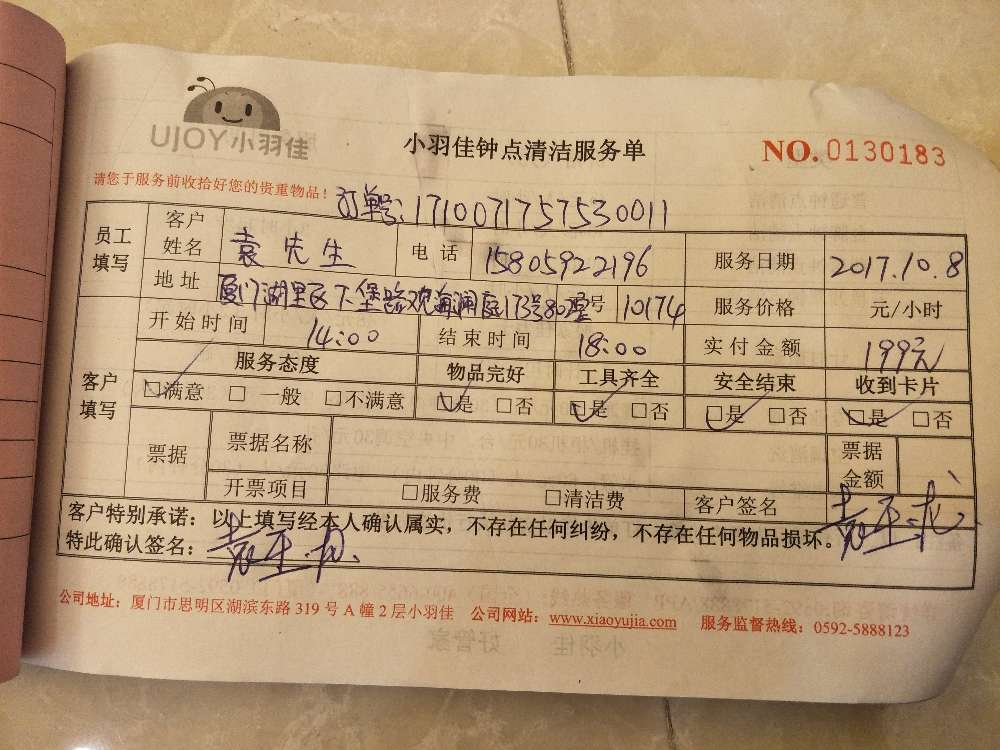 UJOY小羽佳
小羽佳钟点清洁服务单
NO. 0130183
请您于服务前收拾好您的贵重物品！
订单号：1710071757530011
员工填写 客户姓名 袁先生 电话 15805922196 服务日期 2017.10.8
地址 厦门湖里区下堡路观海澜庭173号 号 10174 服务价格 元/小时
开始时间 14:00 结束时间 18:00 实付金额 199元
客户填写 服务态度 物品完好 工具齐全 安全结束 收到卡片
☑满意 □一般 □不满意 ☑是 □否 ☑是 □否 ☑是 □否 ☑是 □否
票据 票据名称 票据金额
开票项目 □服务费 □清洁费 客户签名
客户特别承诺：以上填写经本人确认属实，不存在任何纠纷，不存在任何物品损坏。
特此确认签名：
公司地址：厦门市思明区湖滨东路 319 号 A 幢 2 层小羽佳 公司网站：www.xiaoyujia.com 服务监督热线：0592-5888123